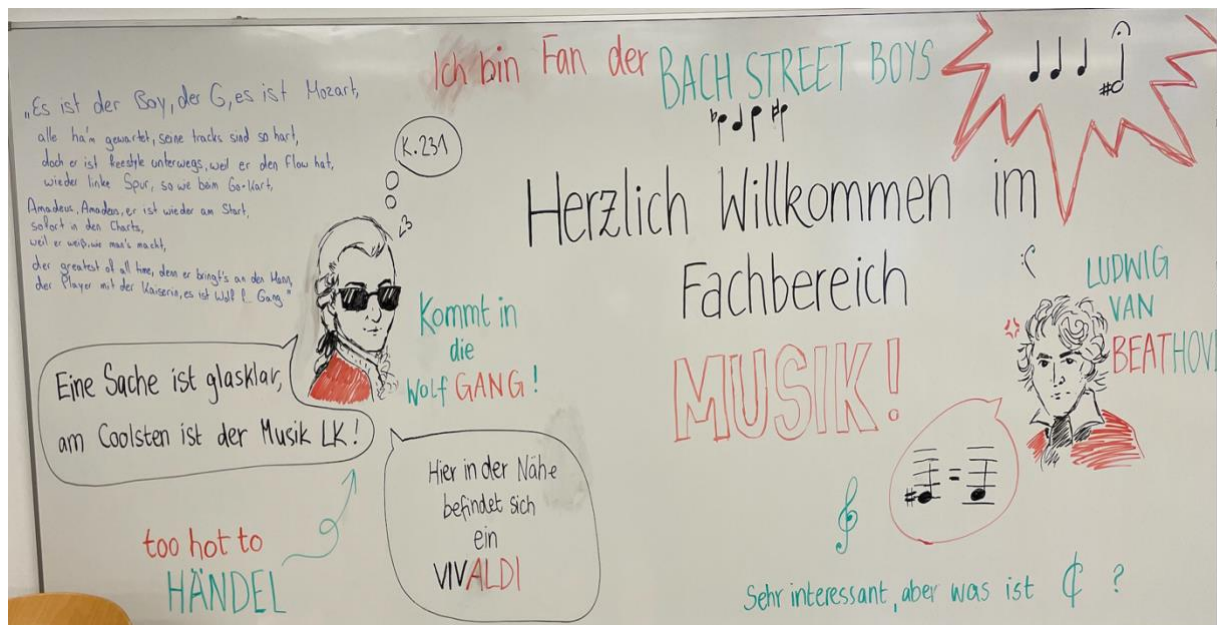 Ich bin Fan der BACH STREET BOYS
„Es ist der Boy, der G, es ist Mozart,
alle ha'm gewartet, seine tracks sind so hart,
doch er ist freestyle unterwegs, weil er den Flow hat,
wieder linke Spur, so wie beim Go-Kart,
Amadeus, Amadeus, er ist wieder am Start,
sofort in den Charts,
weil er weiß, wie man's macht,
der greatest of all time, denn er bringt's an den Mann,
der Player mit der Kaiserin, es ist Wolf G. Gang"
K. 231
<3
Herzlich Willkommen im
Fachbereich
MUSIK!
:(
LUDWIG
VAN
BEATHOVE
Kommt in
die
Wolf GANG!
Eine Sache ist glasklar,
am Coolsten ist der Musik LK!
Hier in der Nähe
befindet sich
ein
VIVALDI
too hot to
HÄNDEL
=
Sehr interessant, aber was ist ¢ ?